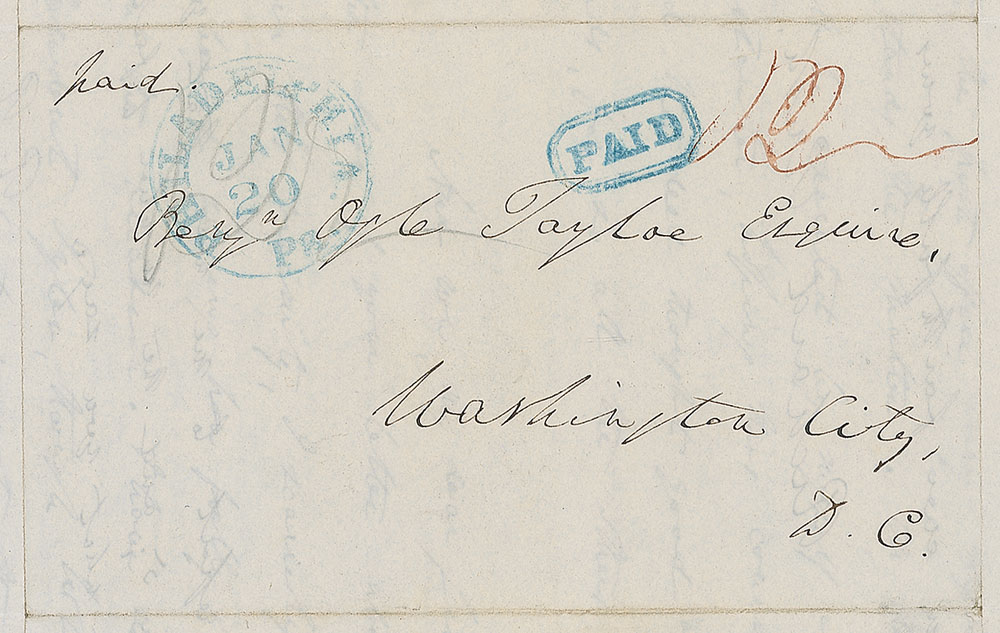 paid.
PHILADELPHIA Pa.
JAN
20
PAID
12
Benjn Ogle Tayloe Esquire,
Washington City,
D. C.